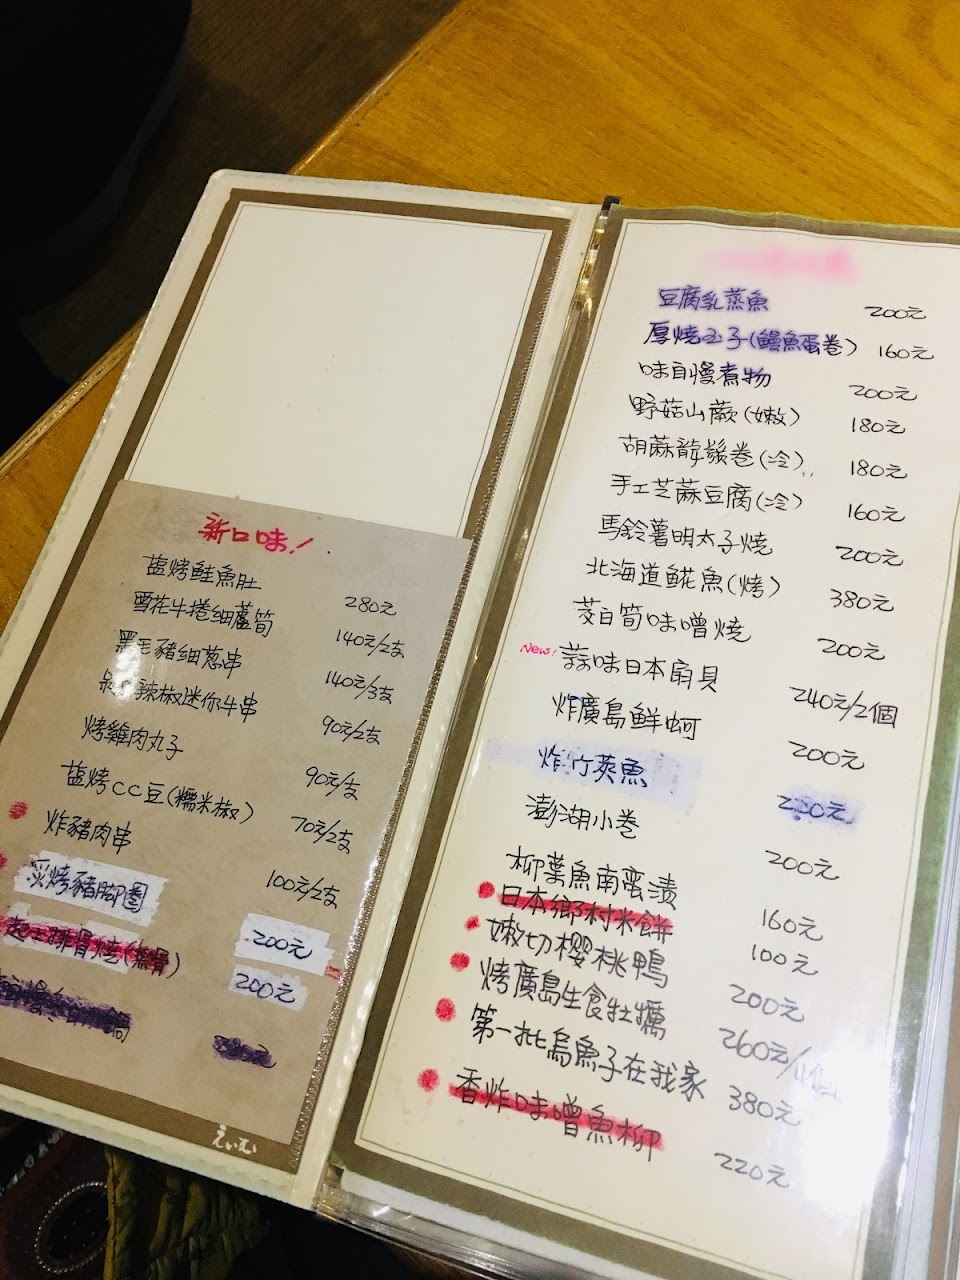 新口味!
塩烤鮭魚肚 280元
雪花牛捲細蘆筍 140元/2支
黑毛豬細蔥串 140元/3支
辣椒迷你牛串 90元/2支
烤雞肉丸子 90元/支
塩烤CC豆(糯米椒) 70元/2支
炸豬肉串 100元/2支
炭烤豬腳圈 200元
起士排骨燒(無骨) 200元
鍋 380元
えいむ
豆腐乳蒸魚 200元
厚燒玉子(鰻魚蛋卷) 160元
味自慢煮物 200元
野菇山蕨(嫩) 180元
胡蔴龍鬚卷(冷) 180元
手工芝蔴豆腐(冷) 160元
馬鈴薯明太子燒 200元
北海道鯎魚(烤) 380元
茭白筍味噌燒 200元
New! 蒜味日本扇貝 240元/2個
炸廣島鮮蚵 200元
炸竹莢魚 200元
澎湖小卷 200元
柳葉魚南蛮漬 160元
日本鄉村米餅 100元
嫩切櫻桃鴨 200元
烤廣島生食牡蠣 260元/
第一批烏魚子在我家 380元
香炸味噌魚柳 220元